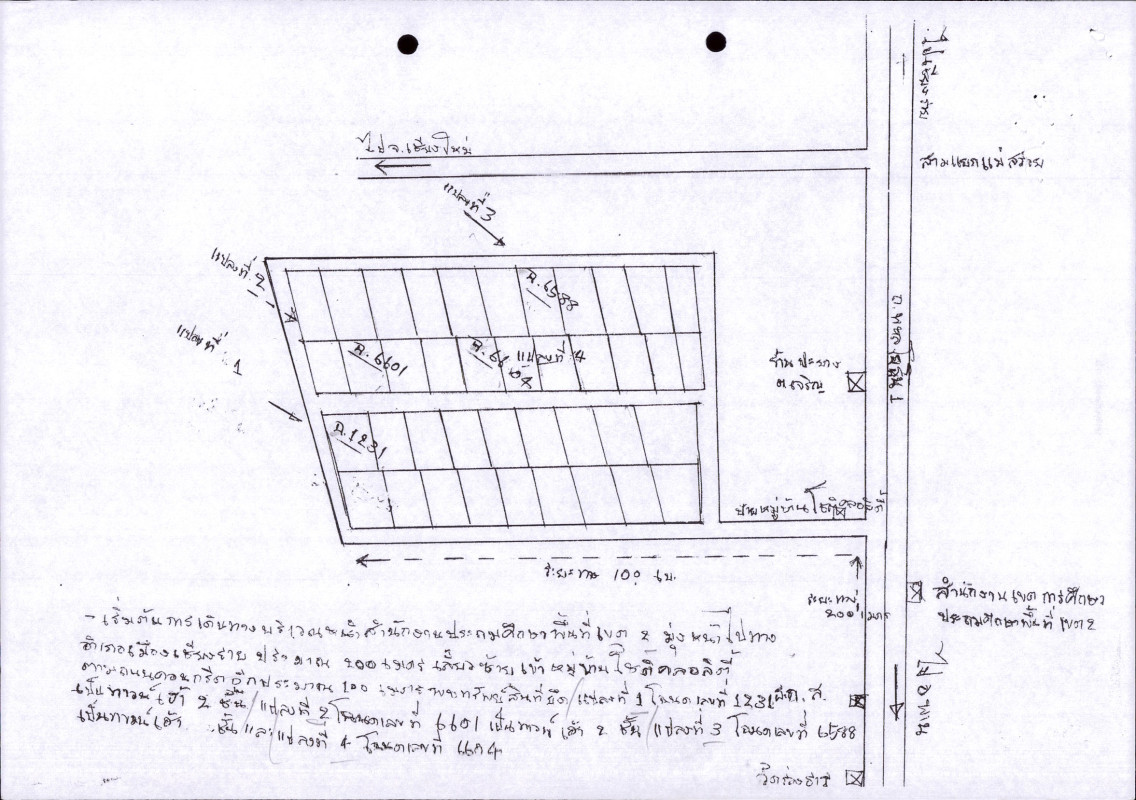 ไปเชียงราย
ไป จ.เชียงใหม่
สามแยกแม่สรวย
แปลงที่ 3
แปลงที่ 2
แปลงที่ 1
ฉ.6588
ฉ.6601
ฉ.66
แปลงที่ 4
ฉ.1231
ถ.พหลโยธิน
บ้าน
ต.เจริญ
ป้ายหมู่บ้านโชติคลอลิตี้
ระยะทาง 100 ม.
ระยะทาง
200 เมตร
สำนักงานเขตการศึกษา
ประถมศึกษาพื้นที่เขต 2
- เริ่มต้นการเดินทางบริเวณหน้าสำนักงานประถมศึกษาพื้นที่เขต 2 มุ่งหน้าไปทาง
อำเภอเมืองเชียงราย ประมาณ 200 เมตร เลี้ยวซ้ายเข้าหมู่บ้านโชติคลอลิตี้
ตามถนนคอนกรีตอีกประมาณ 100 เมตร ทรัพย์สินที่ยึด/แปลงที่ 1 โฉนดเลขที่ 1231
เป็นทาวน์เฮ้า 2 ชั้น/แปลงที่ 2 โฉนดเลขที่ 6601 เป็นทาวน์เฮ้า 2 ชั้น/แปลงที่ 3 โฉนดเลขที่ 6588
เป็นทาวน์เฮ้า ชั้น และแปลงที่ 4 โฉนดเลขที่
ไป อ.พาน